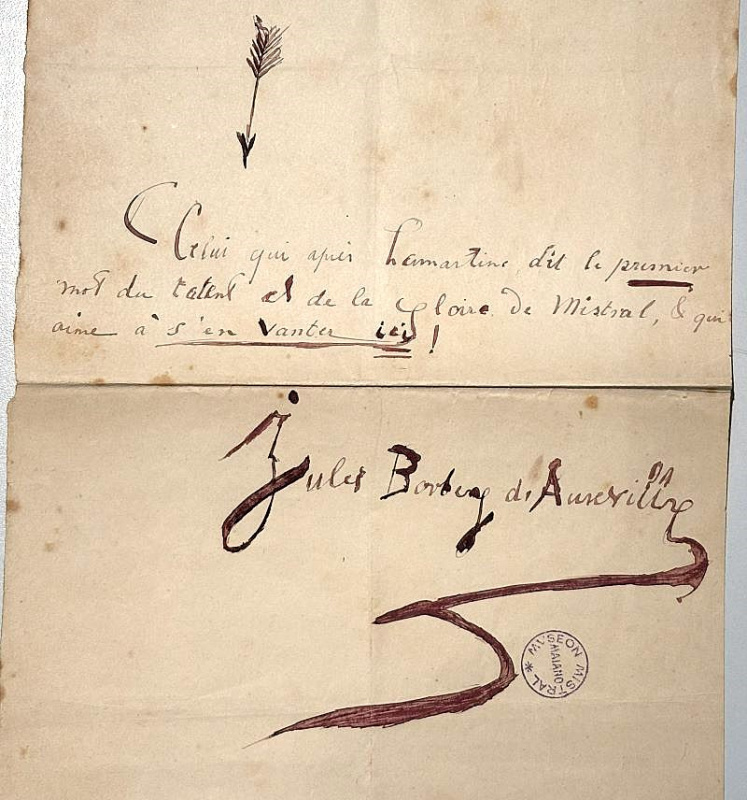 Celui qui après Lamartine, dit le premier
mot du talent et de la gloire de Mistral, & qui
aime à s'en vanter ici !
Jules Barbey d'Aurevilly
MUSEON MISTRAL * MAIANO